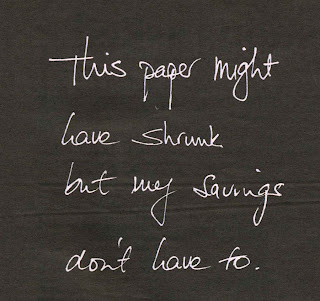 This paper might
have shrunk
but my savings
don't have to.